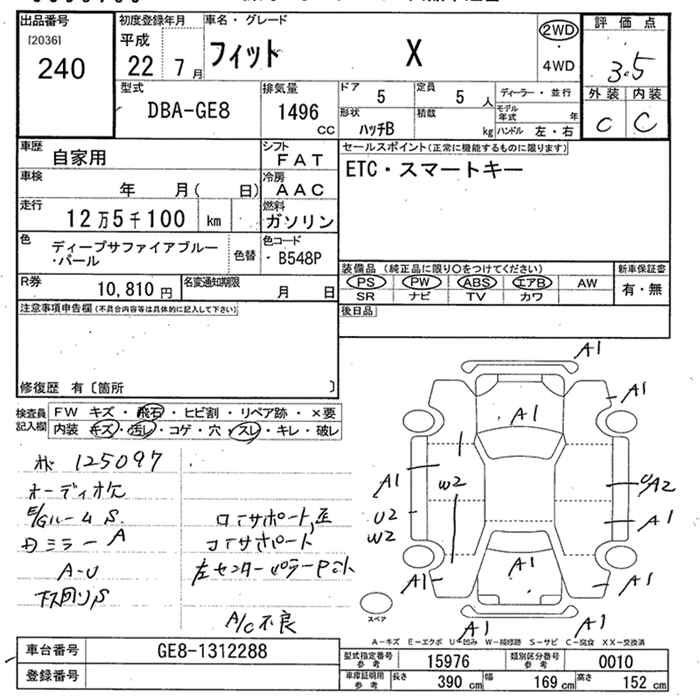 出品番号
[2036]
240
初度登録年月
平成
22 7月
車名・グレード
フィット X
2WD
・
4WD
評価点
3.5
外装 内装
C C
型式
DBA-GE8
排気量
1496
cc
ドア 5
定員 5 人
形状
ハッチB
積載
kg
ディーラー・並行
モデル年式 年
ハンドル 左・右
車歴
自家用
シフト
FAT
車検
年 月( 日)
冷房
AAC
走行
12万5千100 km
燃料
ガソリン
色
ディープサファイアブルー
・パール
色替
色コード
・B548P
R券
10,810円
名変通知期限
月 日
セールスポイント(正常に機能するものに限ります)
ETC・スマートキー
装備品(純正品に限り○をつけてください)
PS PW ABS エアB AW
SR ナビ TV カワ
新車保証書
有・無
後日品
注意事項申告欄(不具合内容等は具体的に記入して下さい)
修復歴 有〔箇所 〕
検査員
記入欄
FW キズ・飛石・ヒビ割・リペア跡・×要
内装 キズ・汚レ・コゲ・穴・スレ・キレ・破レ
125097
オーディオ欠
E/Gルーム S
ミラー A
A-U
下回りS
コアサポート
左センターピラー
A/C不良
A1
A1
A1
A1
W2
A2
U2
W2
A1
A1
A1
A1
A1
A1
スペア
A-キズ E-エクボ U-凹み W-補修跡 S-サビ C-腐食 XX-交換済
車台番号
GE8-1312288
登録番号
型式指定番号
参考
15976
類別区分番号
参考
0010
車庫証明用
参考
長さ 390 cm
幅 169 cm
高さ 152 cm